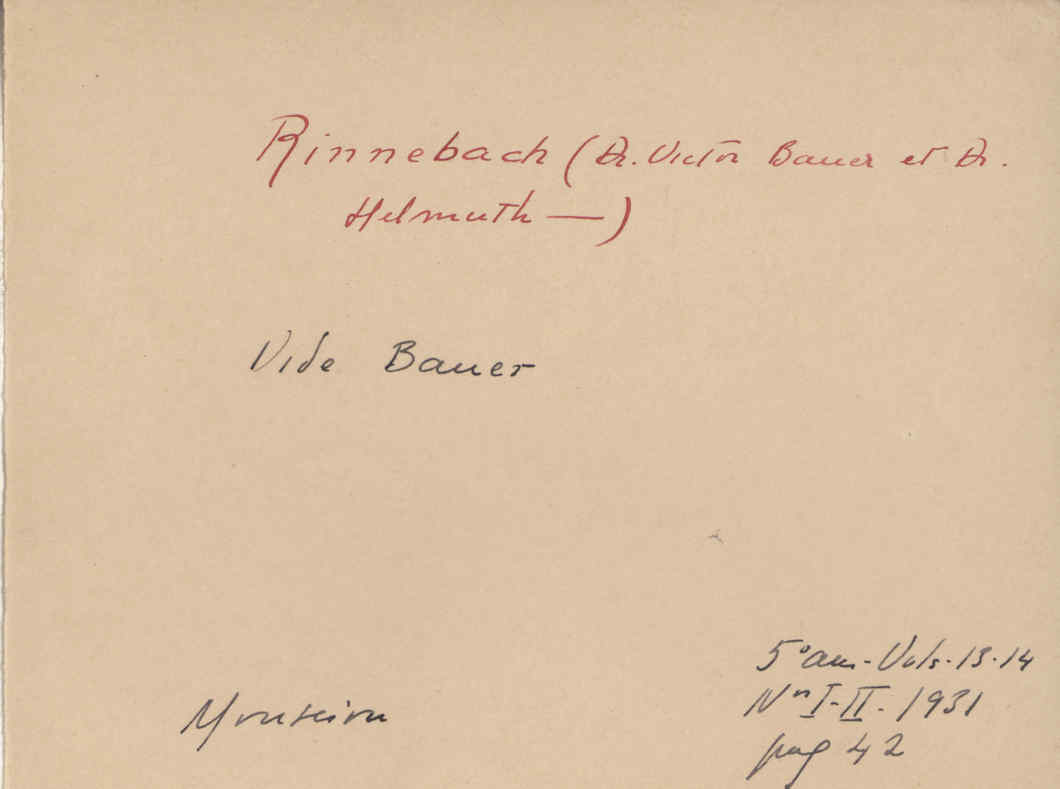 Rinnebach (Dr. Victor Bauer et Dr.
Helmuth —)
Vide Bauer
5º ano - Vols. 13-14
Nos I-II - 1931
pag 42
Mouseion